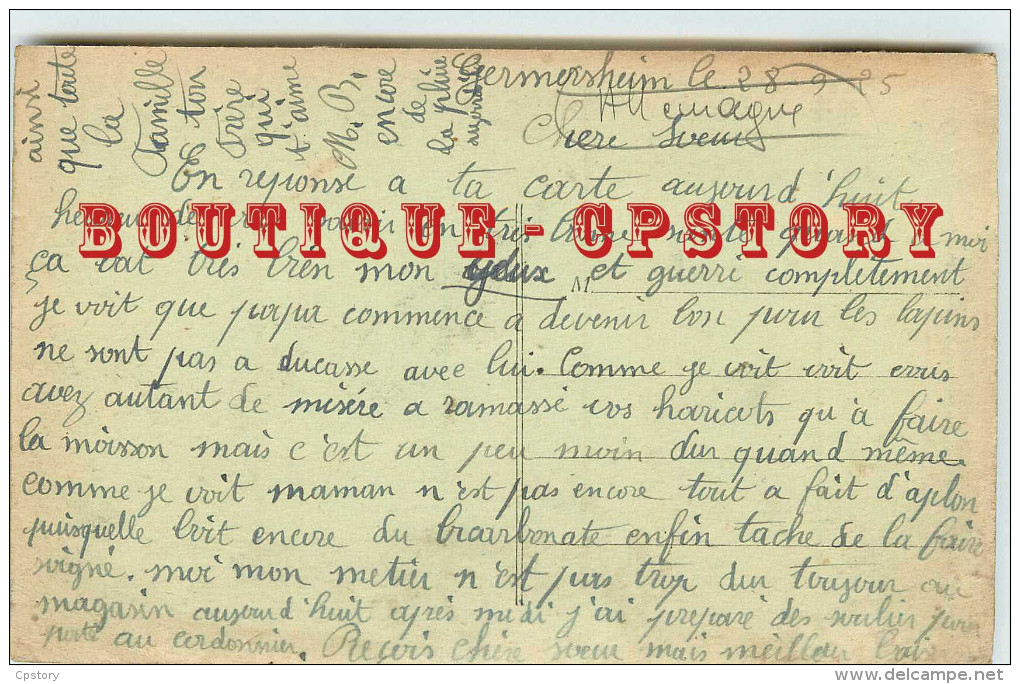 Germersheim le 28-9-25
Allemagne
Chère Soeur
En reponse a ta carte aujourd'huit
BOUTIQUE - CPSTORY
ça vat très bien mon yeux et guerri completement
je voit que papa commence a devenir bon pour les lapins
ne sont pas a ducasse avec lui. Comme je voit
avez autant de misére a ramassé vos haricots qu'à faire
la moisson mais c'est un peu moin dur quand même.
comme je voit maman n'est pas encore tout a fait d'aplon
puisquelle boit encore du bicarbonate enfin tache de la faire
soigné. moi mon metier n'est pas trop dur toujour au
magasin aujourd'huit après midi j'ai preparé des soulier pour
porté au cordonnier. Reçois chère soeur mais meilleur
ainsi
que toute
la
Famille
Et ton
Frère
qui
t'aime
M. B.
encore
de
la pluie
© Cpstory